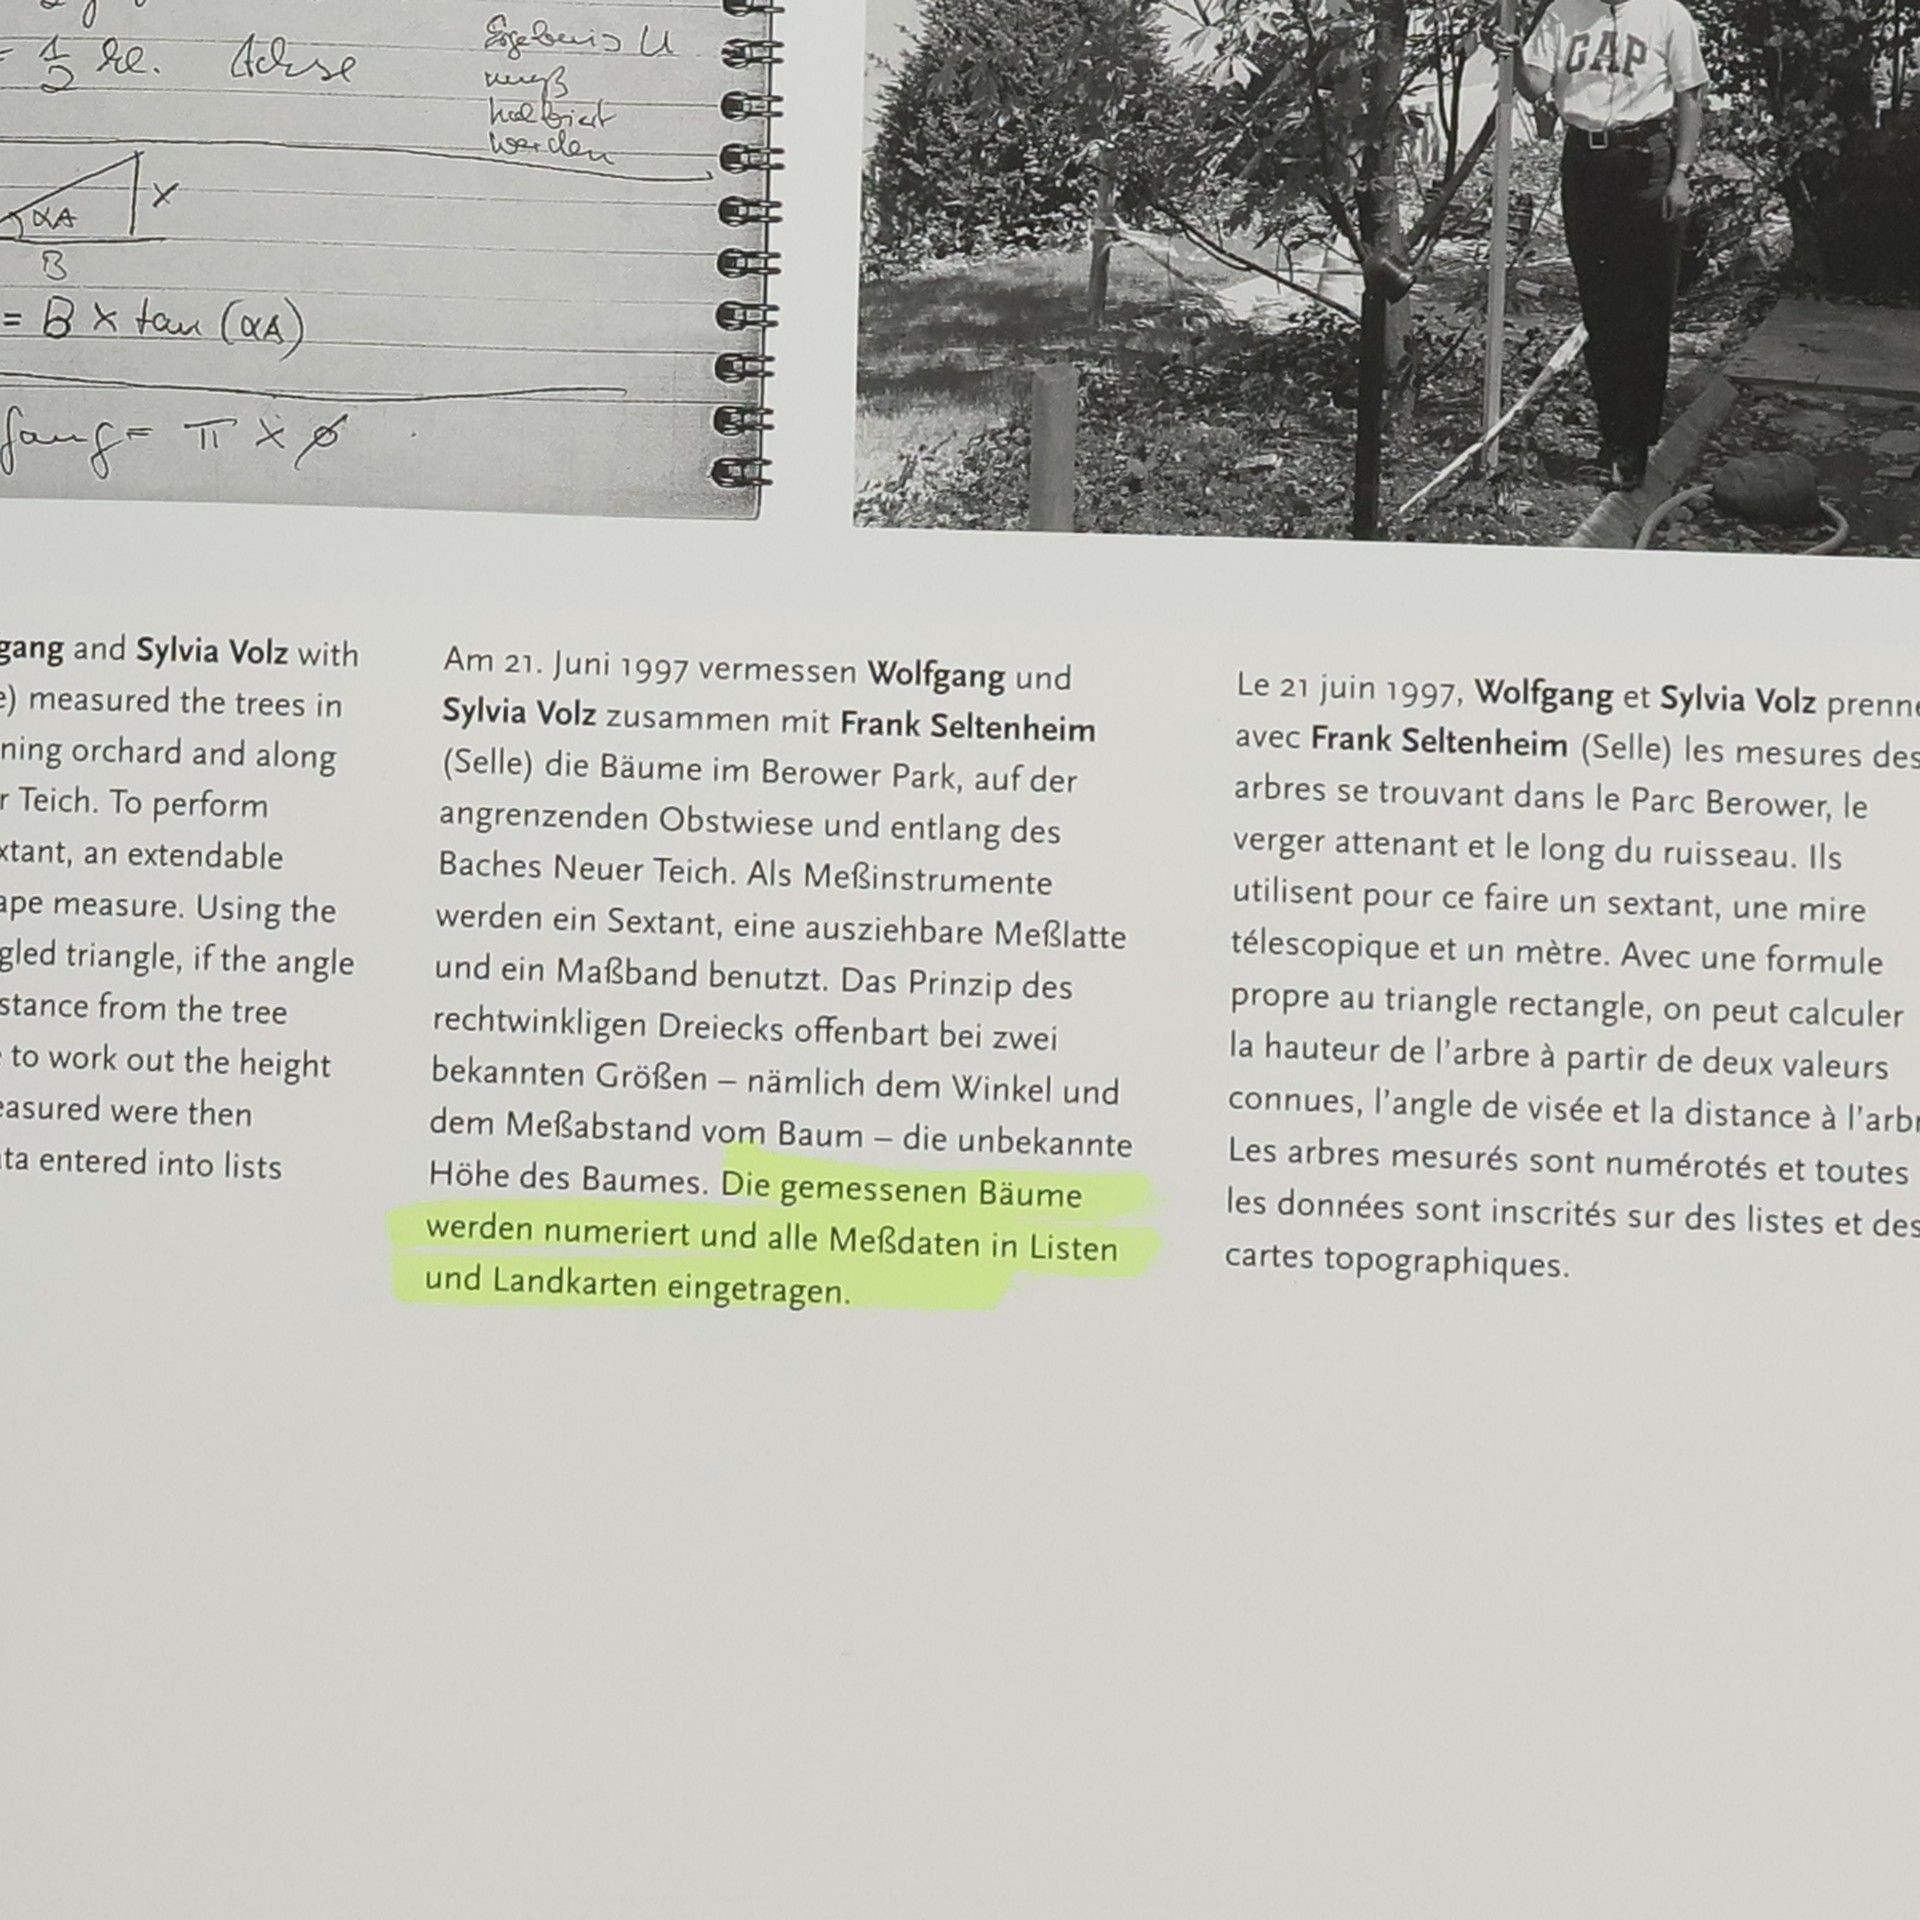 = 1/2 kl. Achse
Ergebnis U
muß
halbiert
werden
αA
X
B
= B x tan (αA)
fang = π x ø
GAP
and Sylvia Volz with
measured the trees in
orchard and along
Teich. To perform
an extendable
measure. Using the
triangle, if the angle
from the tree
to work out the height
were then
entered into lists
Am 21. Juni 1997 vermessen Wolfgang und
Sylvia Volz zusammen mit Frank Seltenheim
(Selle) die Bäume im Berower Park, auf der
angrenzenden Obstwiese und entlang des
Baches Neuer Teich. Als Meßinstrumente
werden ein Sextant, eine ausziehbare Meßlatte
und ein Maßband benutzt. Das Prinzip des
rechtwinkligen Dreiecks offenbart bei zwei
bekannten Größen – nämlich dem Winkel und
dem Meßabstand vom Baum – die unbekannte
Höhe des Baumes. Die gemessenen Bäume
werden numeriert und alle Meßdaten in Listen
und Landkarten eingetragen.
Le 21 juin 1997, Wolfgang et Sylvia Volz
avec Frank Seltenheim (Selle) les mesures des
arbres se trouvant dans le Parc Berower, le
verger attenant et le long du ruisseau. Ils
utilisent pour ce faire un sextant, une mire
télescopique et un mètre. Avec une formule
propre au triangle rectangle, on peut calculer
la hauteur de l'arbre à partir de deux valeurs
connues, l'angle de visée et la distance à
Les arbres mesurés sont numérotés et toutes
les données sont inscrités sur des listes et des
cartes topographiques.